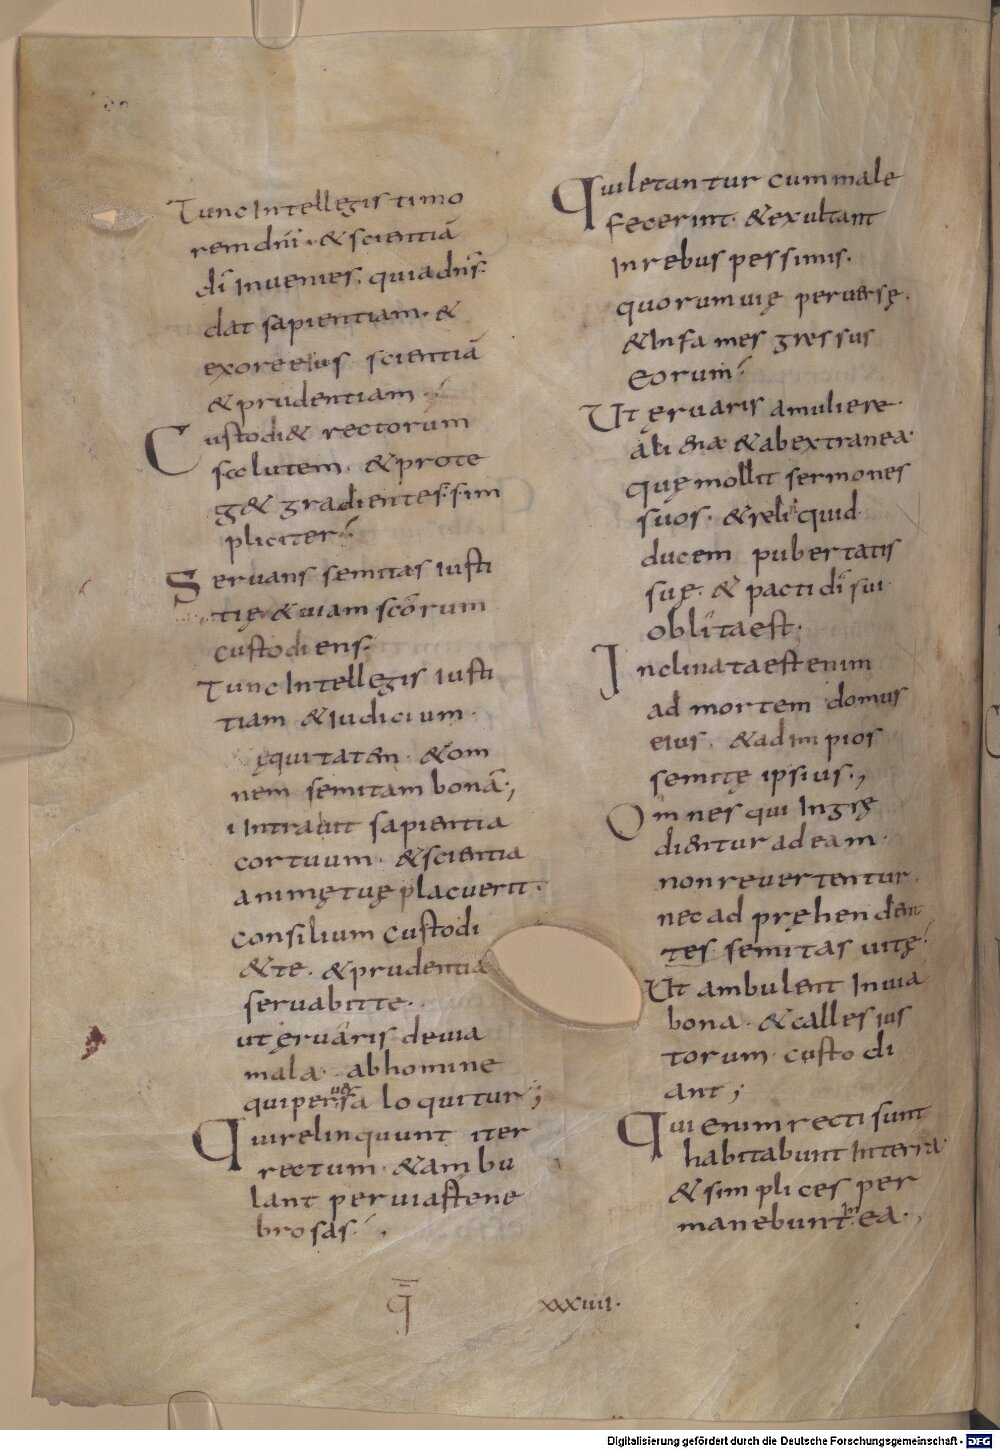 Tunc Intellegis timo
rem dni · & scientiā
dī Invenies. quiadn̄s
dat sapientiam · &
exore eius scientiā
& prudentiam
Custodi& rectorum
salutem. & prote
g& gradientes sim
pliciter
Servans semitas iusti
tię & viam scōrum
custodiens.
Tunc Intellegis iusti
tiam & Iudicium
ęquitatem · & om
nem semitam bonā;
i Intraverit sapientia
cor tuum · & scientia
animę tuę placuerit.
consilium custodi
& te · & prudentia
servabit te ·
ut ęruaris devia
mala · abhomine
qui perversa loquitur;
Qui relinquunt iter
rectum · & ambu
lant pervias tene
brosas
Qui letantur cum male
fecerint · & exultant
In rebus pessimis.
quorum vię perversę.
& Infames gressus
eorum
Ut ęruaris amuliere
aliena & abextranea
quę mollit sermones
suos · & relinquid
ducem pubertatis
suę · & pacti dī sui
oblita est.
Inclinata est enim
ad mortem domus
eius · & ad impios
semitę ipsius.,
Omnes qui Ingrę
dientur ad eam
non revertentur.
nec ad pręhenden
tes semitas vitę
Ut ambulent In via
bona · & calles ius
torum custodi
ant;
Qui enim recti sunt
habitabunt In terra
& simplices per
manebunt In ea.
q̄ xxxiiii.
Digitalisierung gefördert durch die Deutsche Forschungsgemeinschaft - DFG